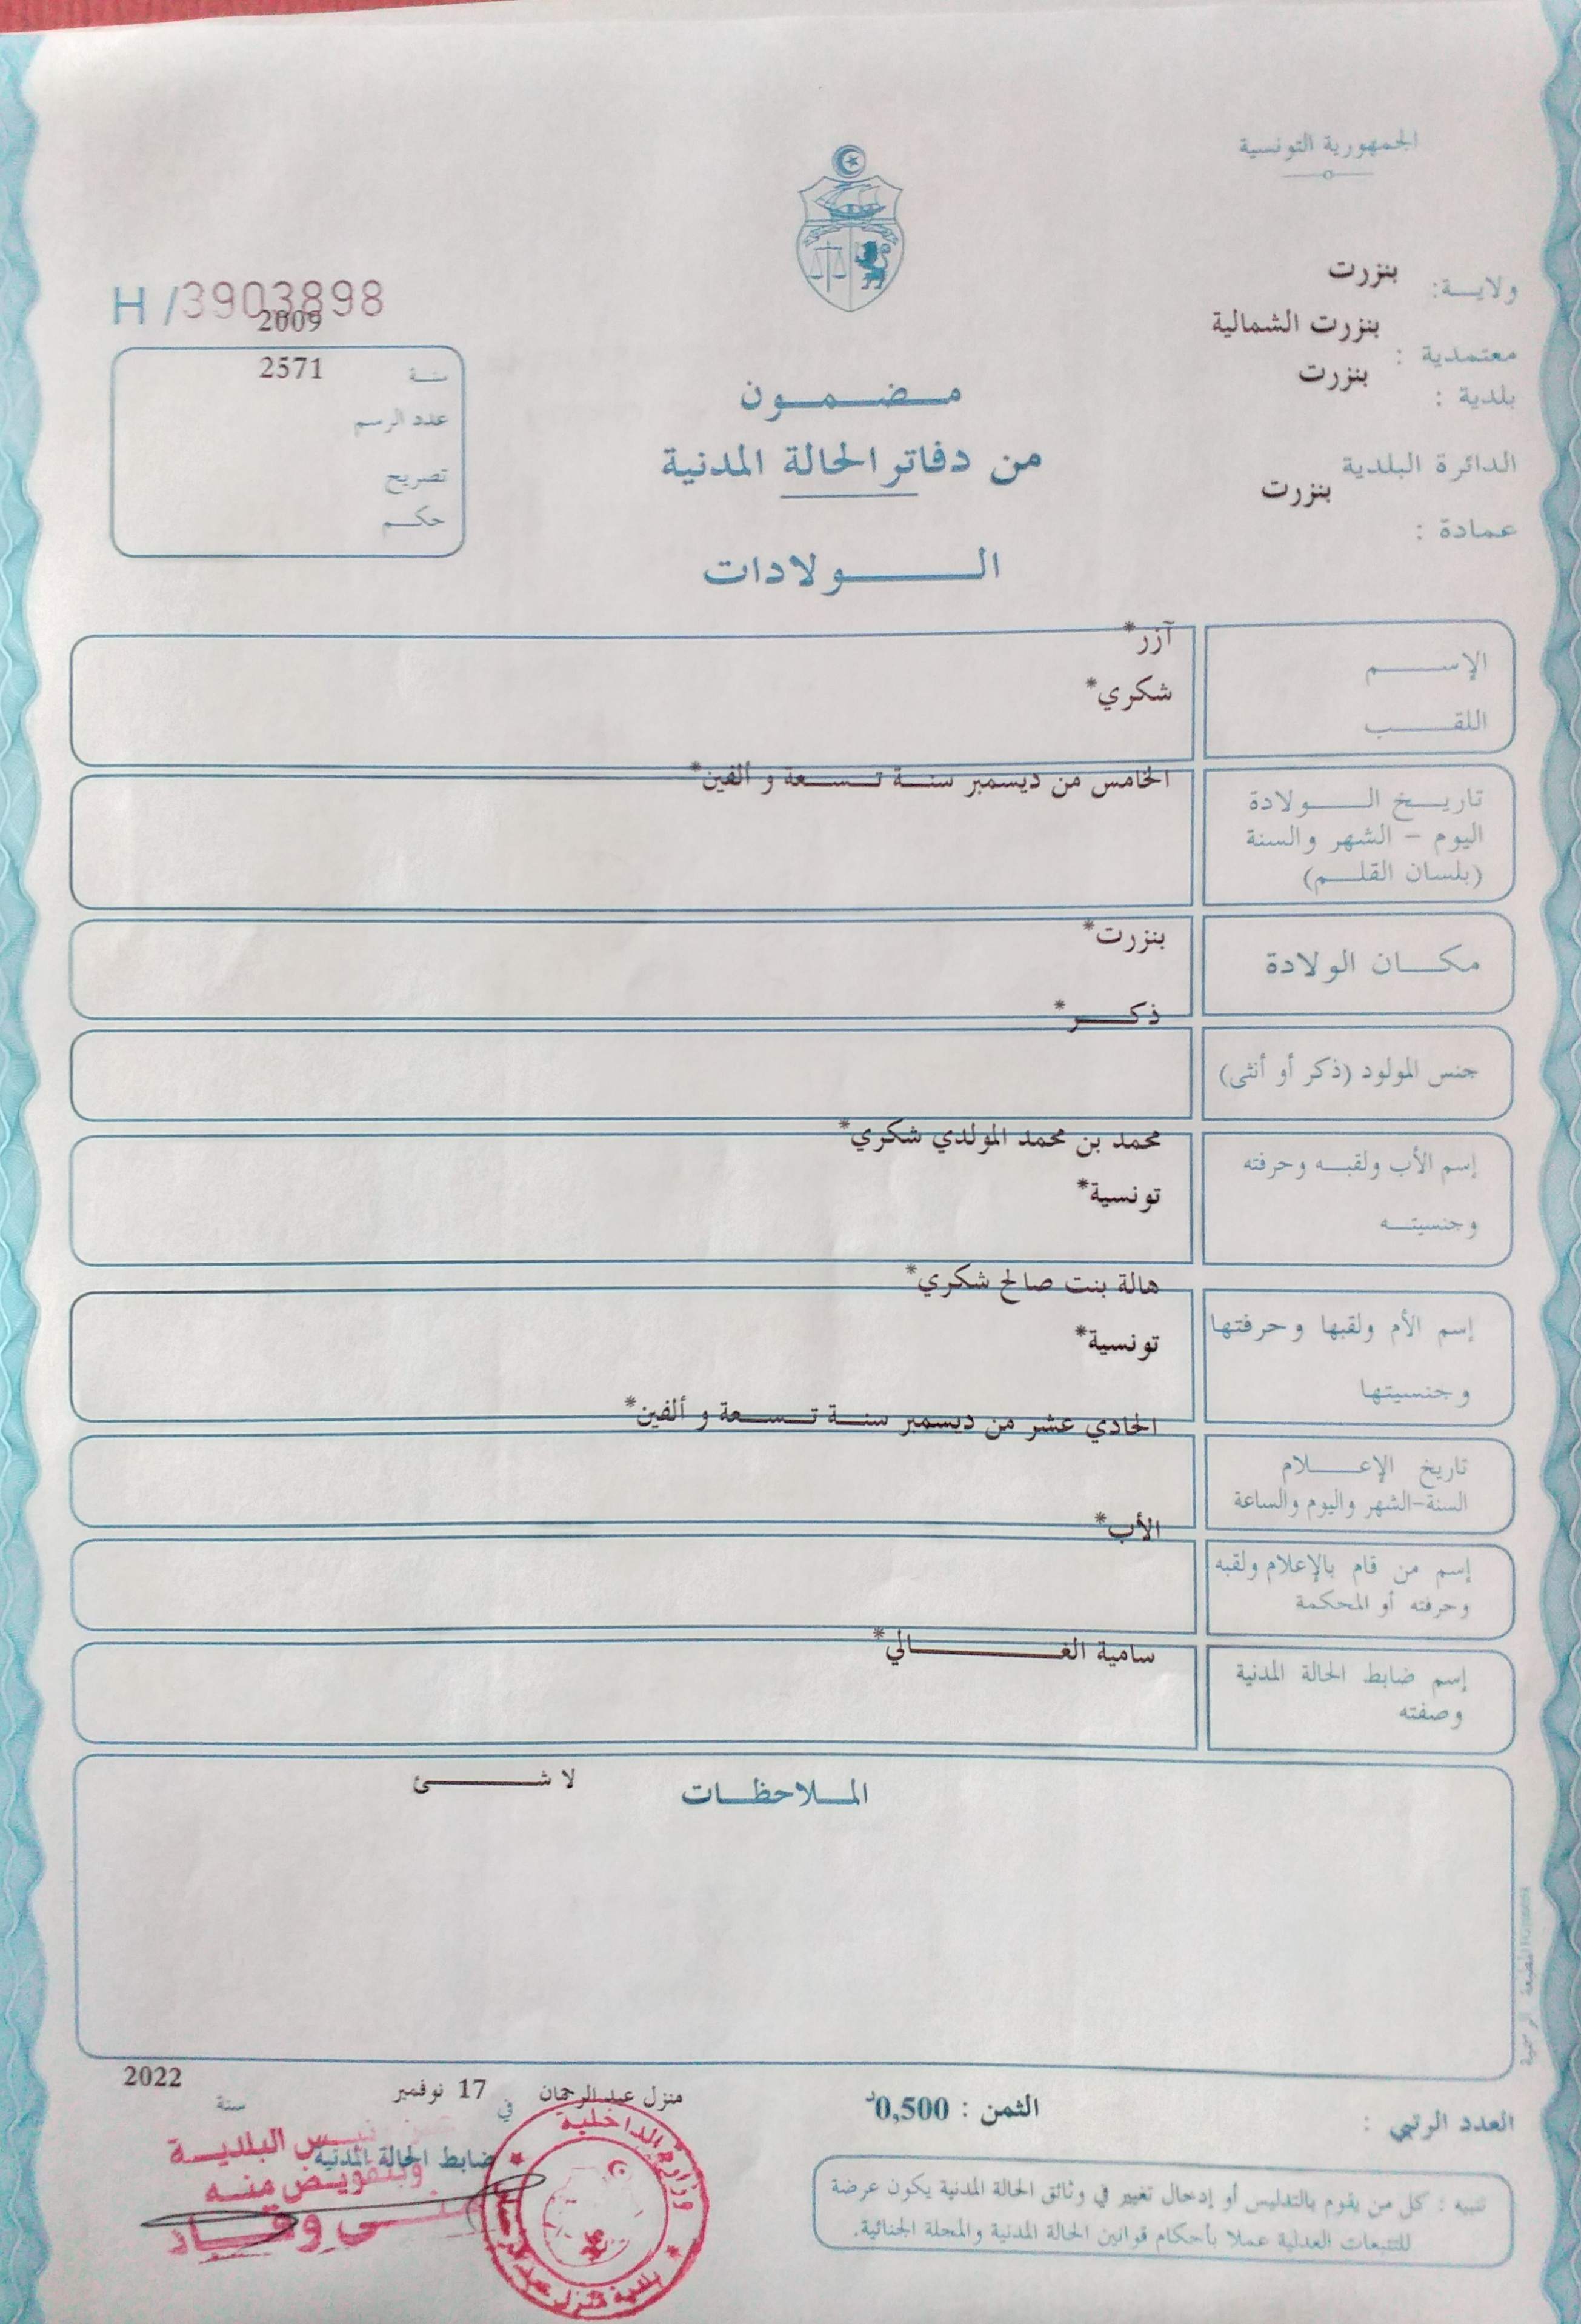 الجمهورية التونسية
ولايـــة: بنزرت
معتمدية : بنزرت الشمالية
بلدية : بنزرت
الدائرة البلدية
بنزرت
عمادة :
H/3903898
2009
سنـــة 2571
عدد الرسم
تصريح
حكـــم
مـــضـــمـــون
من دفاتر الحالة المدنية
الـــــولادات
الإســـــم آزر*
اللقـــــب شكري*
تاريـــخ الـــــولادة الخامس من ديسمبر سنـــة تـــسعـــة و ألفين*
اليوم – الشهر والسنة
(بلسان القلـــم)
مكـــان الولادة بنزرت*
ذكـــر*
جنس المولود (ذكر أو أنثى)
إسم الأب ولقبـــه وحرفته محمد بن محمد المولدي شكري*
وجنسيتـــه تونسية*
إسم الأم ولقبها وحرفتها هالة بنت صالح شكري*
وجنسيتها تونسية*
تاريخ الإعـــلام الحادي عشر من ديسمبر سنـــة تـــسعـــة و ألفين*
السنة-الشهر واليوم والساعة
إسم من قام بالإعلام ولقبه الأب*
وحرفته أو المحكمة
إسم ضابط الحالة المدنية سامية الغـــــالي*
وصفته
الملاحظـــات لا شـــــئ
المطبعة الرسمية
العدد الرتبي :
الثمن : 0,500د
منزل عبد الرحمان في 17 نوفمبر سنة 2022
ضابط الحالة المدنية
البلديـــة
وبتفويض منـــه
وزارة الداخلية
بلدية منزل عبد
تنبيه : كل من يقوم بالتدليس أو إدخال تغيير في وثائق الحالة المدنية يكون عرضة
للتتبعات العدلية عملا بأحكام قوانين الحالة المدنية والمجلة الجنائية.